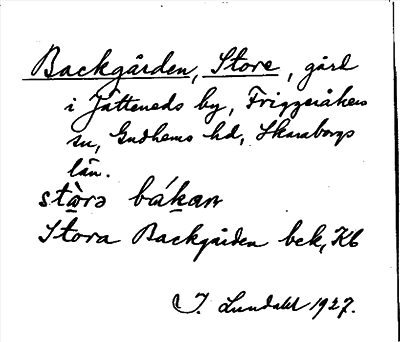 Backgården, Store, gård
i Jätteneds by, Friggeråkers
sn, Gudhems hd, Skaraborgs
län.
stòrə bákan
Stora Backgården bek, Kb
I. Lundahl 1927.